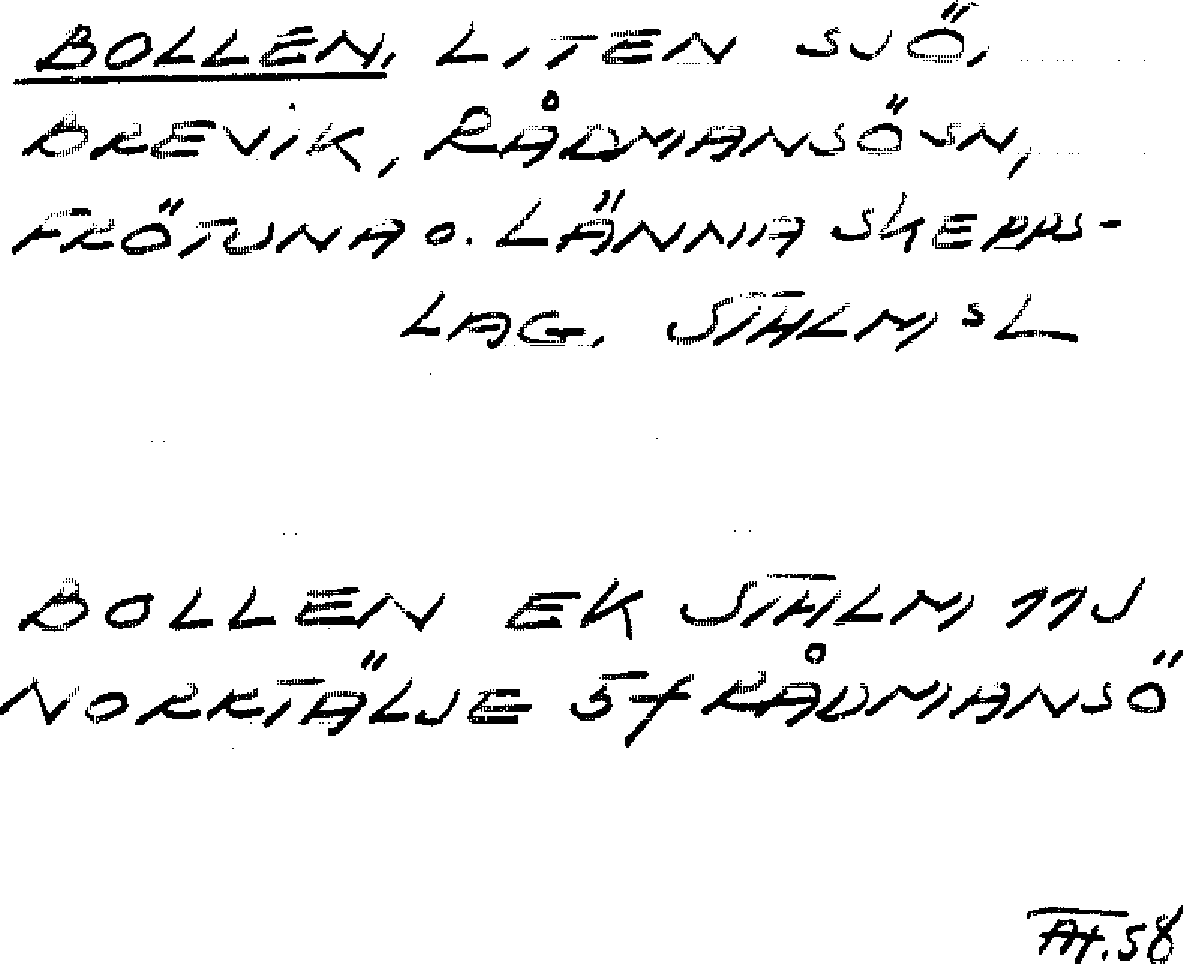 BOLLEN, LITEN SJÖ,
BREVIK, RÅDMANSÖ SN,
FRÖTUNA O. LÄNNA SKEPPS-
LAG. STHLM SL
BOLLEN EK STHLM 11J
NORRTÄLJE 5f RÅDMANSÖ
58